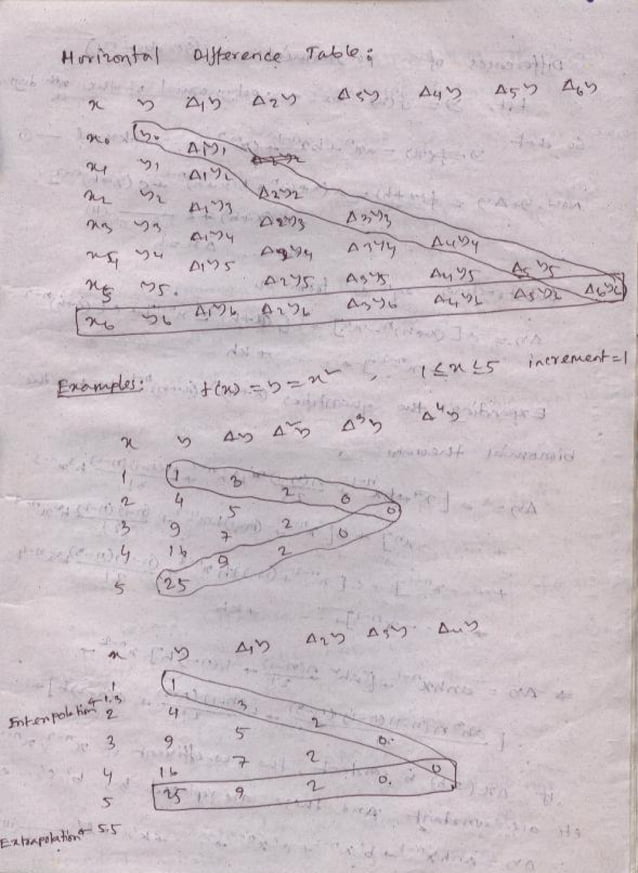 Horizontal Difference Table:
x y Δ1y Δ2y Δ3y Δ4y Δ5y Δ6y
x0 y0
x1 y1 Δ1y1
x2 y2 Δ1y2 Δ2y2
x3 y3 Δ1y3 Δ2y3 Δ3y3
x4 y4 Δ1y4 Δ2y4 Δ3y4 Δ4y4
x5 y5. Δ1y5 Δ2y5 Δ3y5 Δ4y5 Δ5y5
x6 y6 Δ1y6 Δ2y6 Δ3y6 Δ4y6 Δ5y6 Δ6y6
Examples: f(x) = y = x² , 1 ≤ x ≤ 5 increment=1
x y Δy Δ²y Δ³y Δ⁴y
1 1 3 2 0 0
2 4 5 2 0
3 9 7 2
4 16 9
5 25
x y Δ1y Δ2y Δ3y Δ4y
1 1
Interpolation 1.3
2 4 3
3 9 5 2
4 16 7 2 0
5 25 9 2 0 0
Extrapolation 5.5